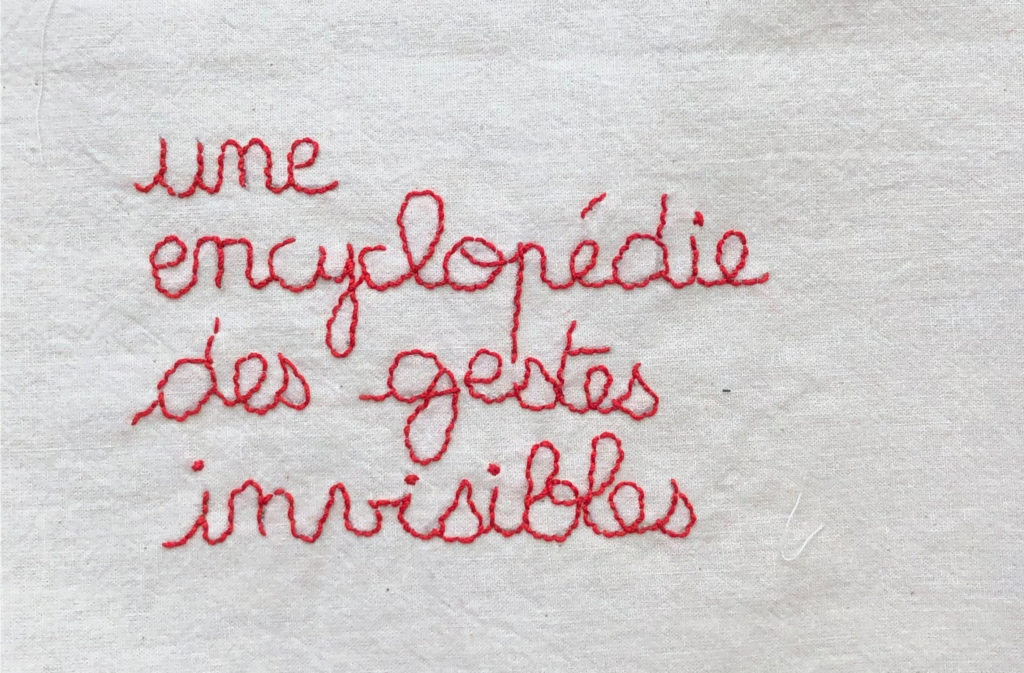 une
encyclopédie
des gestes
invisibles